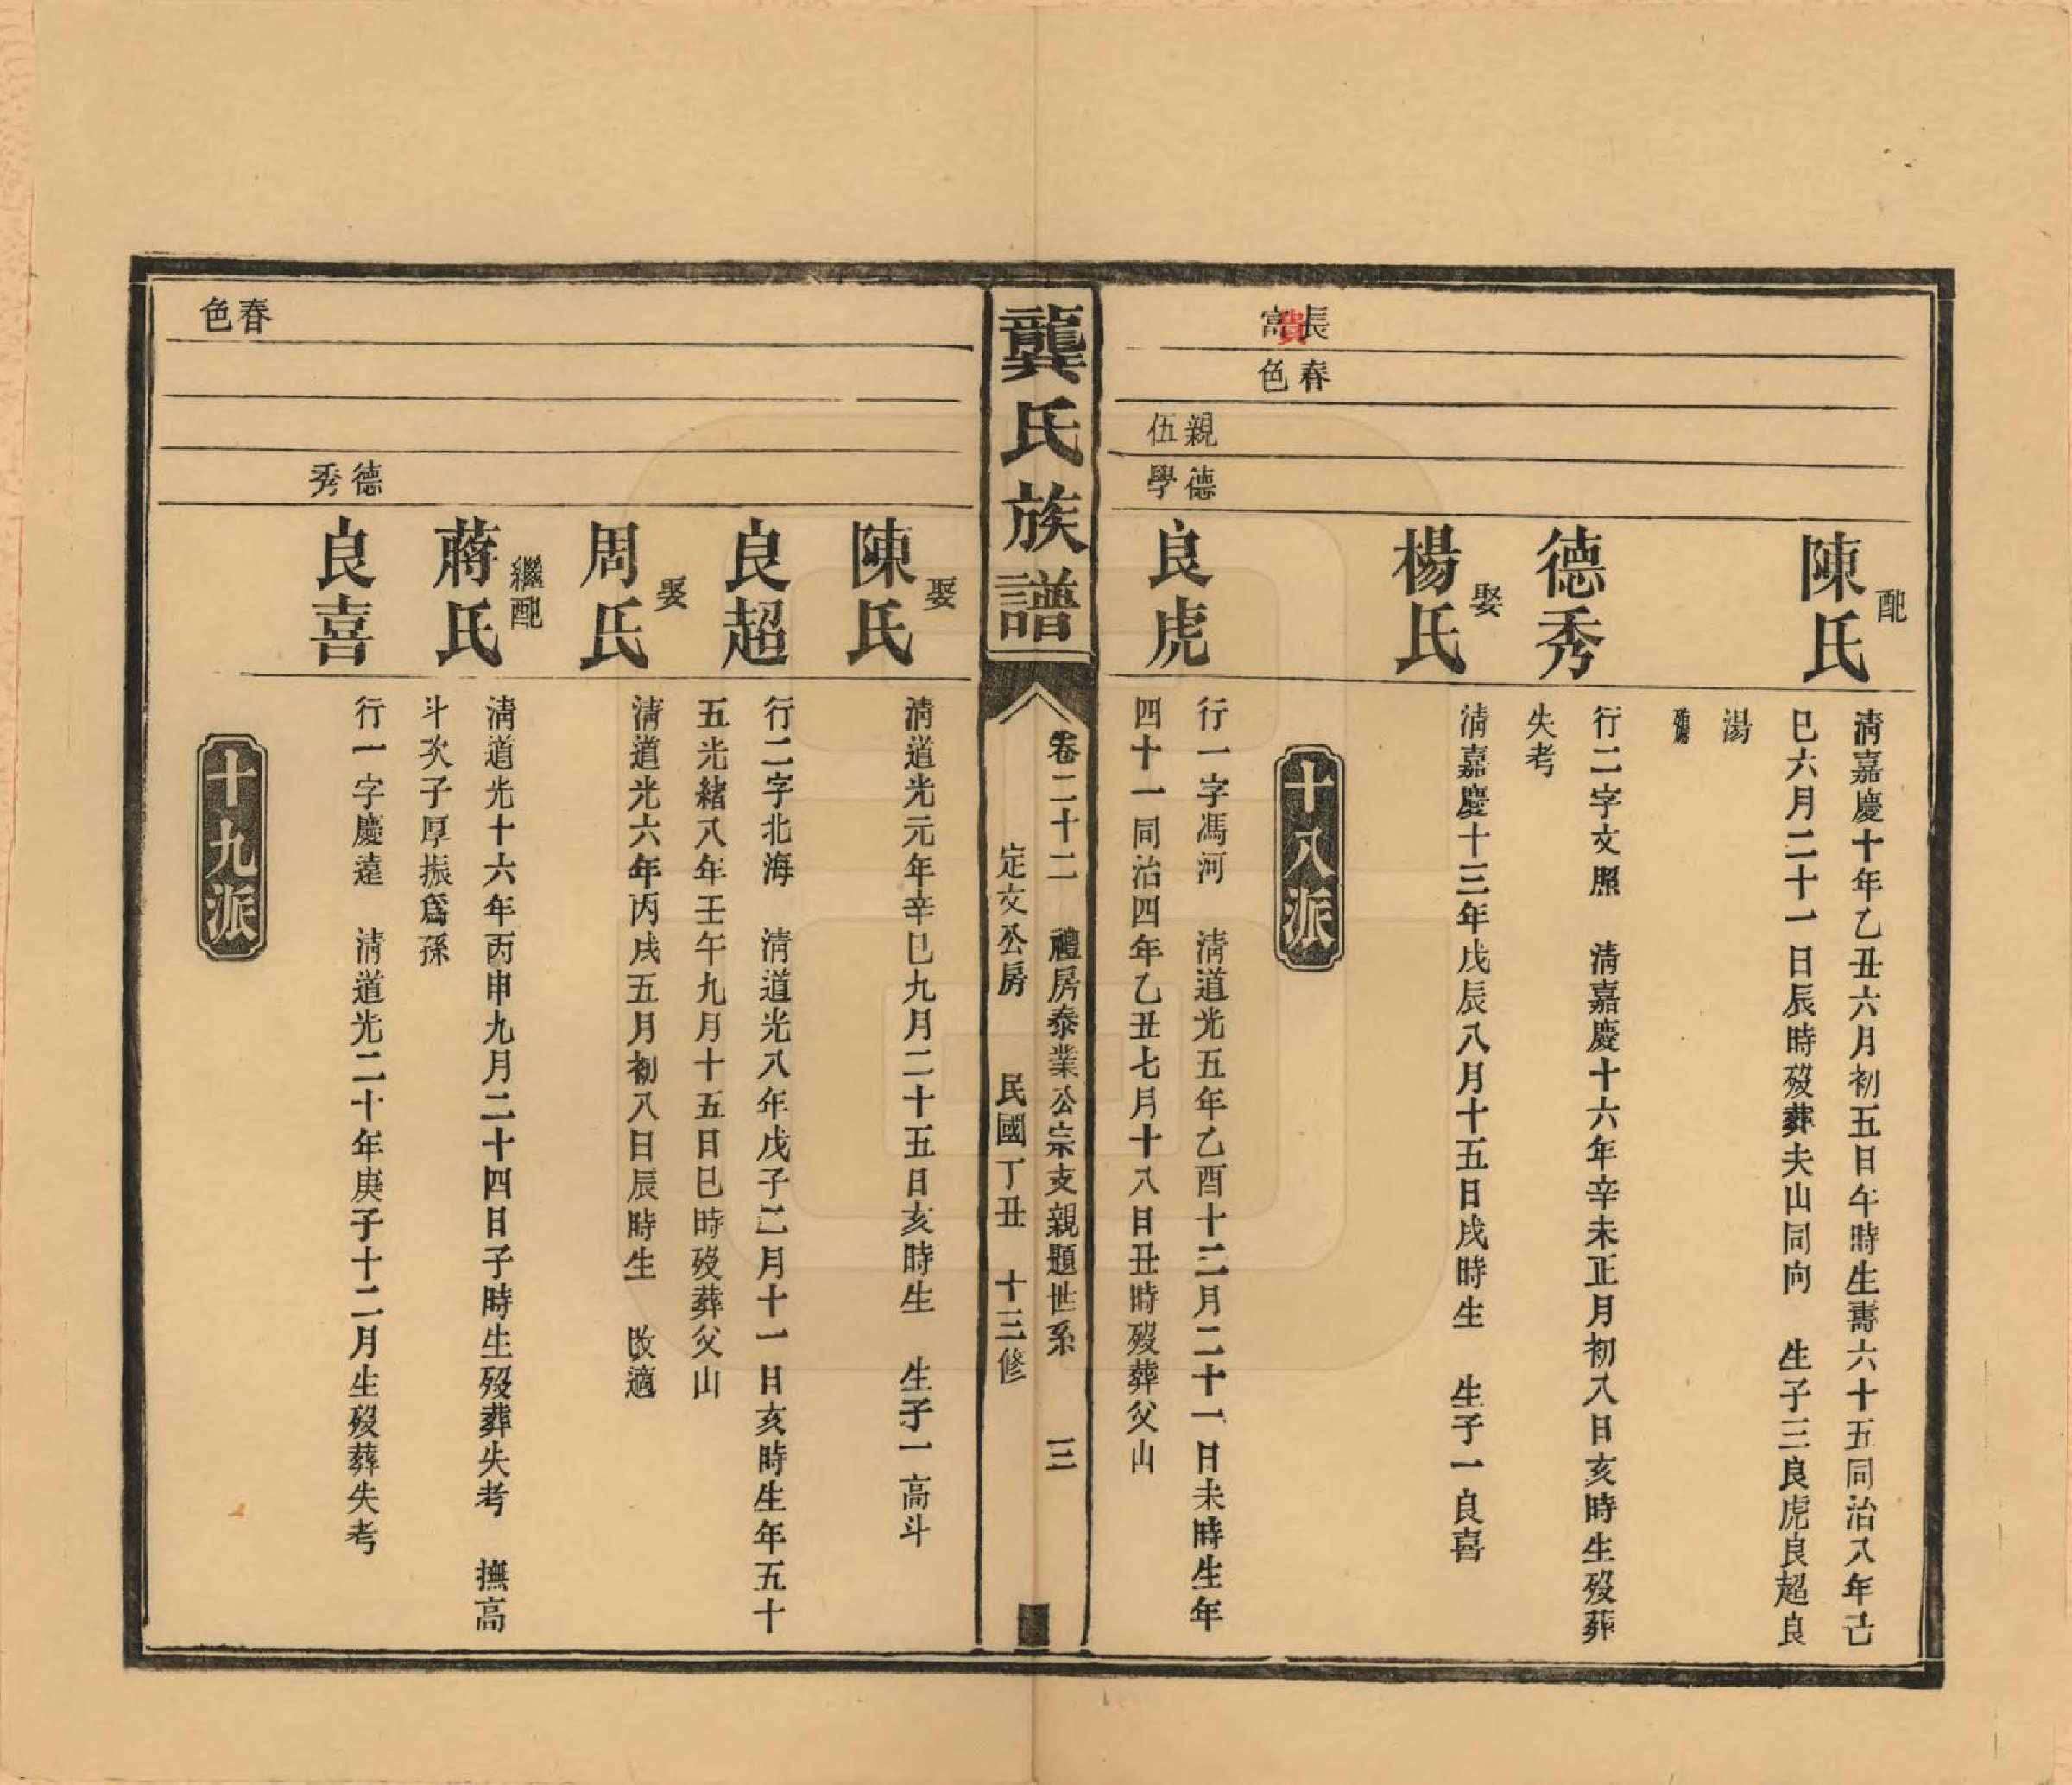 長富
貴
春色
親伍
德學
配
陳氏
清嘉慶十年乙丑六月初五日午時生壽六十五同治八年己
巳六月二十一日辰時歿葬夫山同向 生子三良虎良超良
湯
德秀
行二字文照 清嘉慶十六年辛未正月初八日亥時生歿葬
失考
娶
楊氏
清嘉慶十三年戊辰八月十五日戌時生 生子一良喜
十八派
良虎
行一字馮河 清道光五年乙酉十二月二十一日未時生年
四十一同治四年乙丑七月十八日丑時歿葬父山
龔氏族譜
卷二十二 禮房泰業公宗支親題世系 三
定文公房 民國丁丑 十三修
春色
德秀
娶
陳氏
清道光元年辛巳九月二十五日亥時生 生子一高斗
良超
行二字北海 清道光八年戊子二月十一日亥時生年五十
五光緒八年壬午九月十五日巳時歿葬父山
娶
周氏
清道光六年丙戌五月初八日辰時生 改適
繼配
蔣氏
清道光十六年丙申九月二十四日子時生歿葬失考 撫高
斗次子厚振爲孫
良喜
行一字慶達 清道光二十年庚子十二月生歿葬失考
十九派